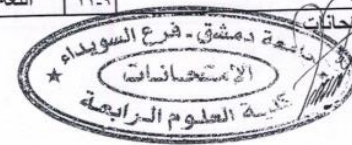 جامعة دمشق - فرع السويداء
الامتحانات
كلية العلوم الرابعة